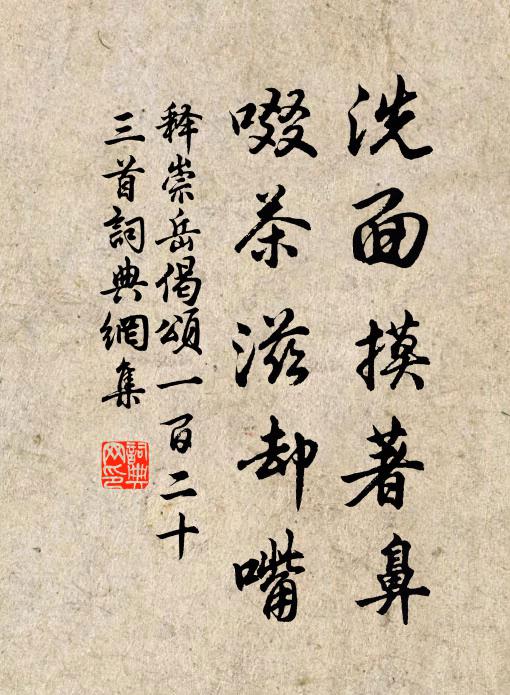 洗面摸著鼻
啜茶滋却嘴
釋崇岳偈頌一百二十
三首詞典網集
詞典网印